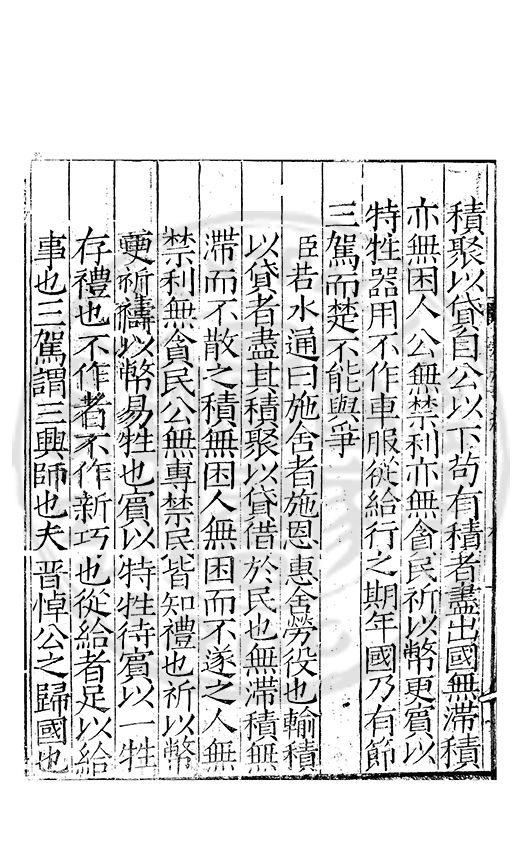 積聚以貸自公以下苟有積者盡出國無滯積
亦無困人公無禁利亦無貪民祈以幣更賓以
特牲器用不作車服從給行之期年國乃有節
三駕而楚不能與爭
臣若水通曰施舍者施恩惠舍勞役也輸積
以貸者盡其積聚以貸借於民也無滯積無
滯而不散之積無困人無困而不遂之人無
禁利無貪民公無專禁民皆知禮也祈以幣
更祈禱以幣易牲也賓以特牲待賓以一牲
存禮也不作者不作新巧也從給者足以給
事也三駕謂三興師也夫晋悼公之歸國也